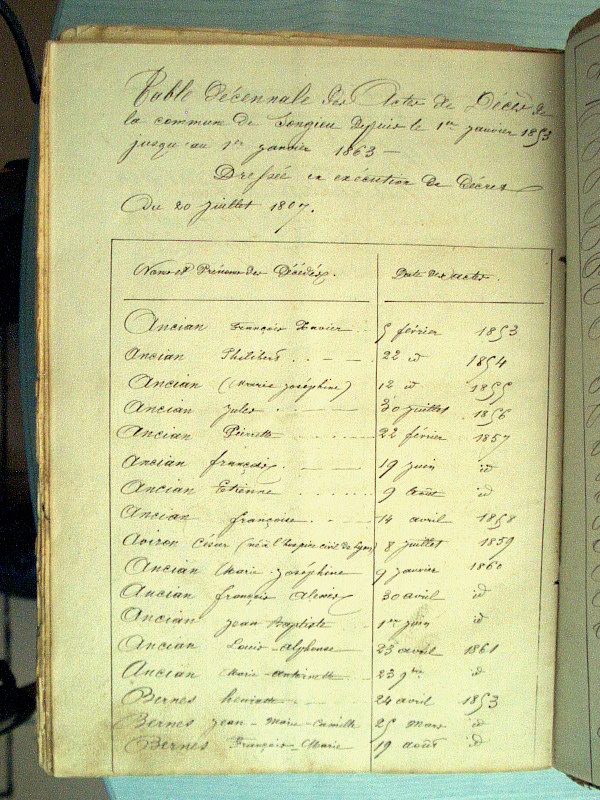 Table décennale des Actes de Décès de
la commune de Songieu Depuis le 1er janvier 1853
jusqu'au 1er janvier 1863 —
Dressée en exécution du Décret
Du 20 juillet 1807.
Noms et Prénoms des Décédés. Date des actes.
Ancian François Xavier 5 février 1853
Ancian Philibert 22 id 1854
Ancian (Marie Joséphine) 12 id 1855
Ancian Jules 30 juillet 1856
Ancian Pierrette 22 février 1857
Ancian françois 19 juin id
Ancian Etienne 9 Août id
Ancian françoise 14 avril 1858
Aviron César (né à l'hospice civil de Lyon) 8 juillet 1859
Ancian Marie Joséphine 9 janvier 1860
Ancian françois Alexis 30 avril id
Ancian jean Baptiste 1er juin id
Ancian Louis alphonse 23 avril 1861
Ancian Marie antoinette 23 9bre id
Bernes henriette 24 avril 1853
Bernes jean-Marie-Camille 25 Mars id
Bernes François-Marie 19 août id